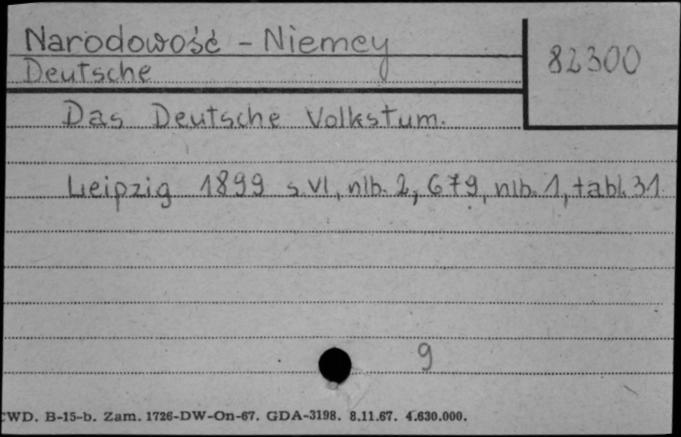 Narodowość - Niemcy
82300
Deutsche
Das Deutsche Volkstum.
Leipzig 1899 s. VI, nlb. 2, 679, nlb. 1, tabl. 31
9
CWD. B-15-b. Zam. 1726-DW-On-67. GDA-3198. 8.11.67. 4.630.000.